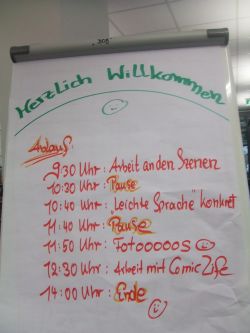 Herzlich Willkommen
Ablauf:
9:30 Uhr: Arbeit an den Szenen
10:30 Uhr: Pause
10:40 Uhr: "Leichte Sprache" konkret
11:40 Uhr: Pause
11:50 Uhr: Fotooooos
12:30 Uhr: Arbeit mit Comic Life
14:00 Uhr: Ende